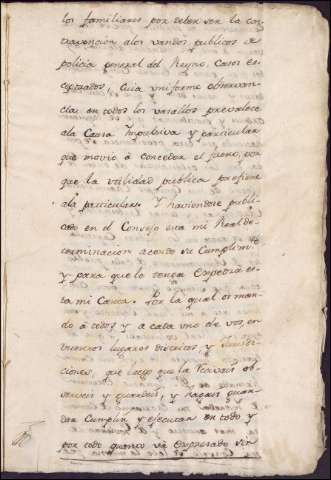 los familiares por deber ser la con
travencion alos vandos publicos de
policia general del Reyno, Casos ex
ceptuados, Cuia uniforme observan
cia en todos los vasallos prevalece
ala Causa Impulsiva y particular
que movió a conceder el fuero, por
que la utilidad publica prefiere
ala particular. Y haviendose publi
cado en el Consejo esta mi Real de
terminacion acordó su Cumplim.to
y para que lo tenga Expedir es
ta mi Carta. Por la qual os man
do á todos y a cada uno de vos, en
vuestros lugares distritos y Jurisdi
ciones, que luego que la recivais ob
serveis y guardeis, y hagais guar
dar Cumplir y executar en todo y
por todo quanto va expresado sin